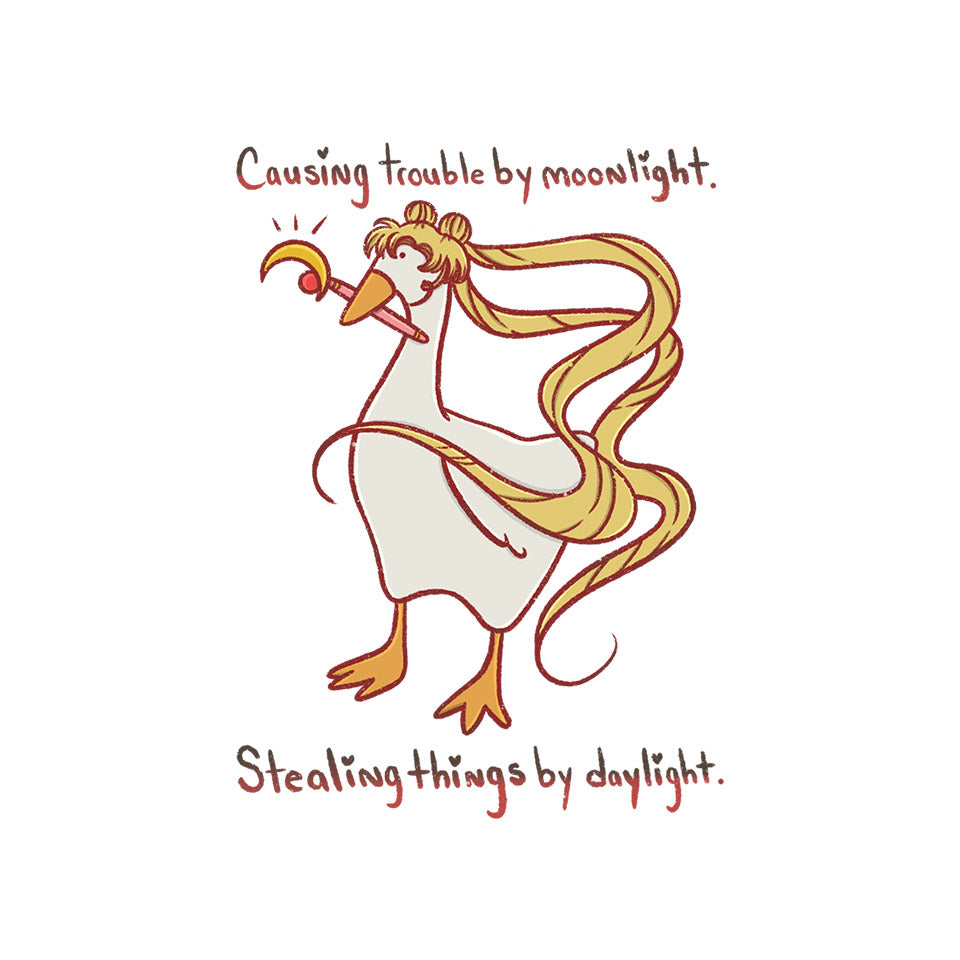 Causing trouble by moonlight.
Stealing things by daylight.